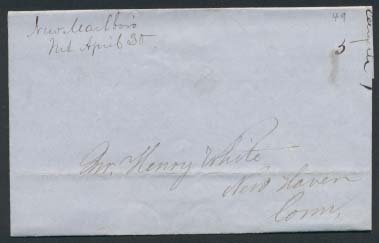 New Marlboro
Ms April 30
49
5
Mr. Henry White
New Haven
Conn,